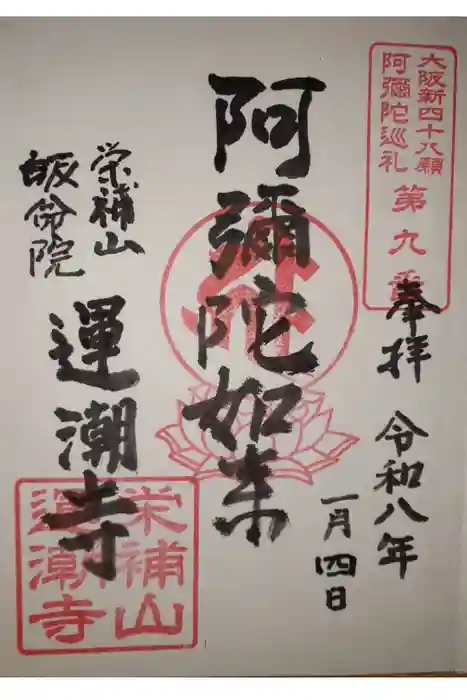 大阪新四十八願
阿彌陀巡礼
第九番
奉拝
令和八年
一月四日
阿彌陀如来
栄補山
院
運潮寺
栄補山
運潮寺